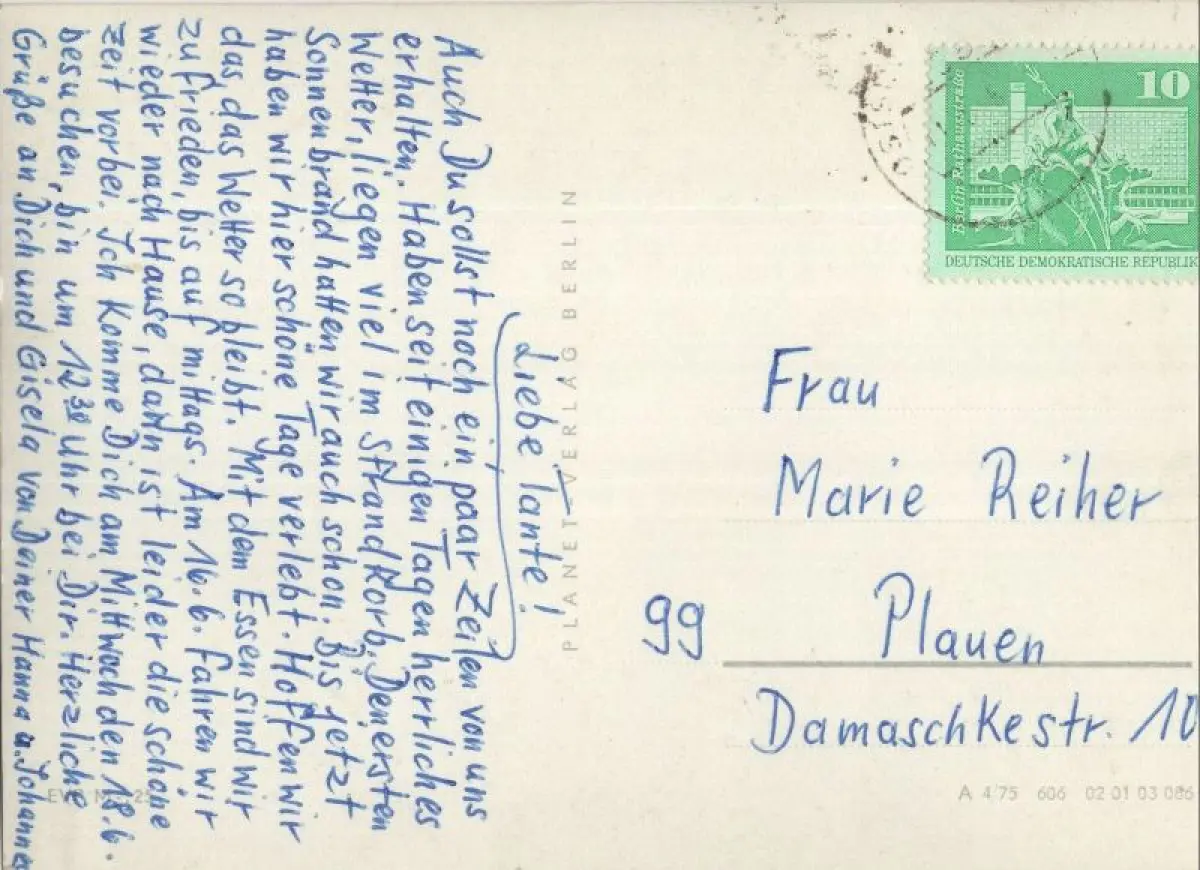 Liebe Tante!
Auch Du sollst noch ein paar Zeilen von uns
erhalten. Haben seit einigen Tagen herrliches
Wetter, liegen viel im Strandkorb. Den ersten
Sonnenbrand hatten wir auch schon. Bis jetzt
haben wir hier schöne Tage verlebt. Hoffen wir
das das Wetter so bleibt. Mit dem Essen sind wir
zufrieden, bis auf mittags. Am 16.6. fahren wir
wieder nach Hause, dann ist leider die schöne
Zeit vorbei. Ich komme Dich am Mittwoch den 18.6.
besuchen, bin um 12 30 Uhr bei Dir. Herzliche
Grüße an Dich und Gisela von Deiner Hanna u. Johannes
PLANET-VERLAG BERLIN
10
Berlin-Rathausstraße
DEUTSCHE DEMOKRATISCHE REPUBLIK
Frau
Marie Reiher
99 Plauen
Damaschkestr. 10
A 4/75 606 02 01 03 086